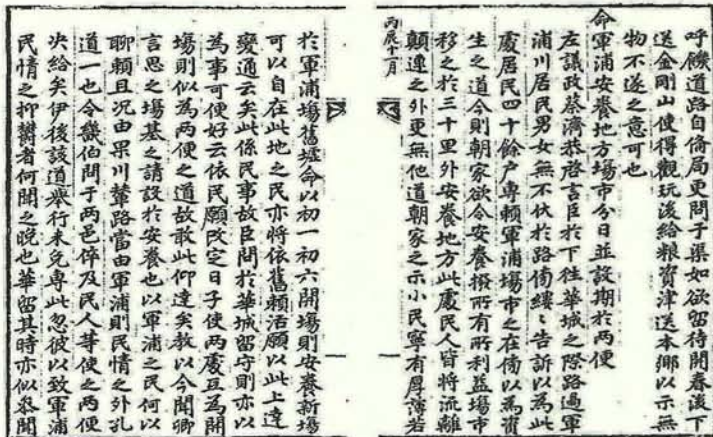 呼饑道路自備局更問于渠如欲留待開春後下
送金剛山使得觀玩後給粮資津送本鄉以示無
物不遂之意可也
命軍浦安養地方塲市分日並設期於兩便
左議政蔡濟恭啓言臣於下往華城之際路過軍
浦川居民男女無不伏於路傍縷〻告訴以爲此
處居民四十餘户專賴軍浦塲市之在傍以爲資
生之道今則朝家欲令安養撥所有所利益塲市
移之於三十里外安養地方此處民人皆將流離
顛連之外更無他道朝家之示小民寧有厚薄若
丙辰十一月
於軍浦塲舊墟命以初一初六開塲則安養新塲
可以自在此地之民亦將依舊賴活願以此上達
變通云矣此係民事故臣問於華城留守則亦以
爲事可便好云依民願改定日子使兩處互爲開
塲則似爲兩便之道故敢此仰達矣敎以今聞卿
言思之塲基之請設於安養也以軍浦之民何以
聊賴且况由果川輦路當由軍浦則民情之外孔
道一也令畿伯問于兩邑倅及民人等使之兩便
決給矣伊後該道舉行未免專此忽彼以致軍浦
民情之抑欝者何聞之晚也華留其時亦似參聞